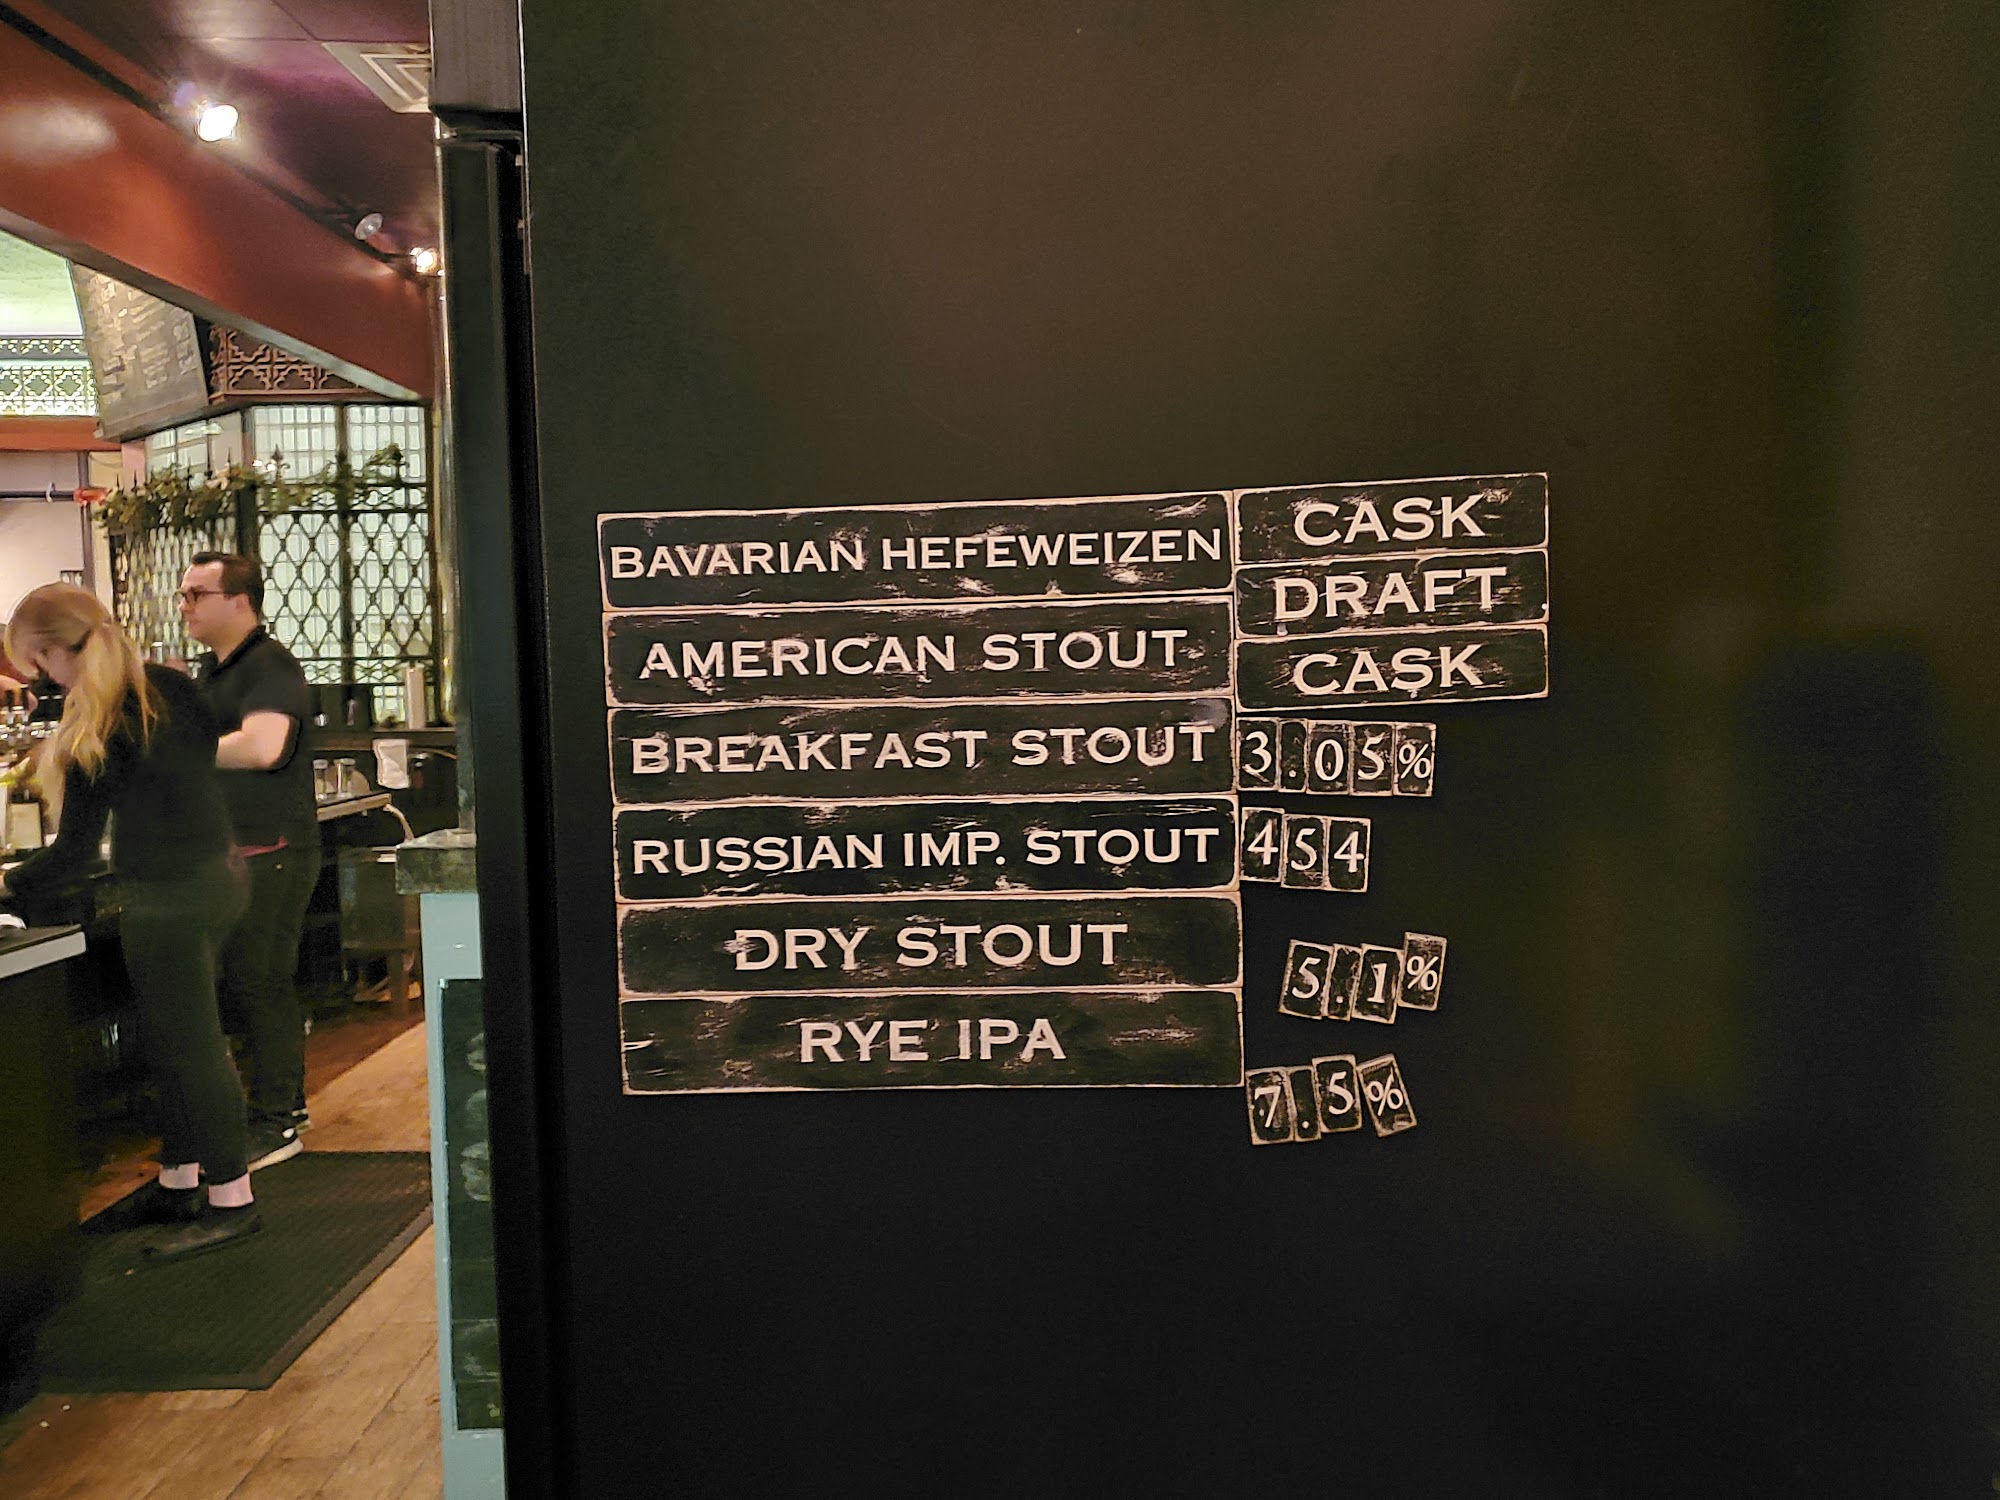 BAVARIAN HEFEWEIZEN
CASK
AMERICAN STOUT
DRAFT
CASK
BREAKFAST STOUT
3.05%
RUSSIAN IMP. STOUT
454
DRY STOUT
5.1%
RYE IPA
7.5%